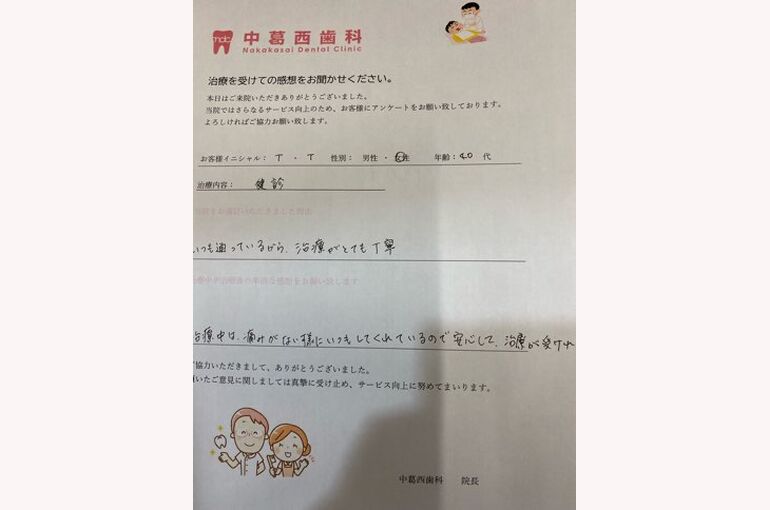 中葛西歯科
Nakakasai Dental Clinic
治療を受けての感想をお聞かせください。
本日はご来院いただきありがとうございました。
当院ではさらなるサービス向上のため、お客様にアンケートをお願い致しております。
よろしければご協力お願い致します。
お客様イニシャル： T ・ T 性別： 男性 ・ 女性 年齢：40 代
治療内容： 健診
当院をお選びいただきました理由
いつも通っているから、治療がとても丁寧
治療中や治療後の率直な感想をお願い致します
治療中は、痛みがない様にいつもしてくれているので安心して、治療が受けれ
ご協力いただきまして、ありがとうございました。
いたご意見に関しましては真摯に受け止め、サービス向上に努めてまいります。
中葛西歯科 院長